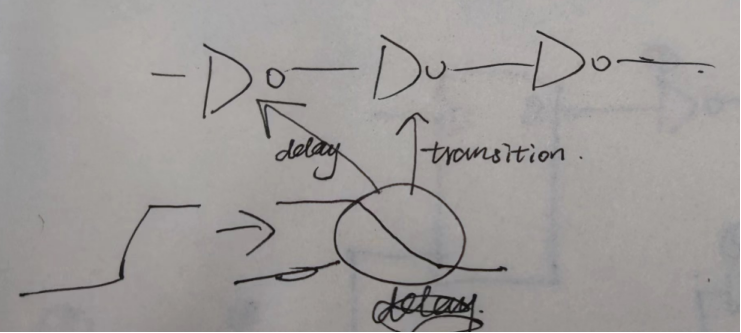 delay
transition.
delay.